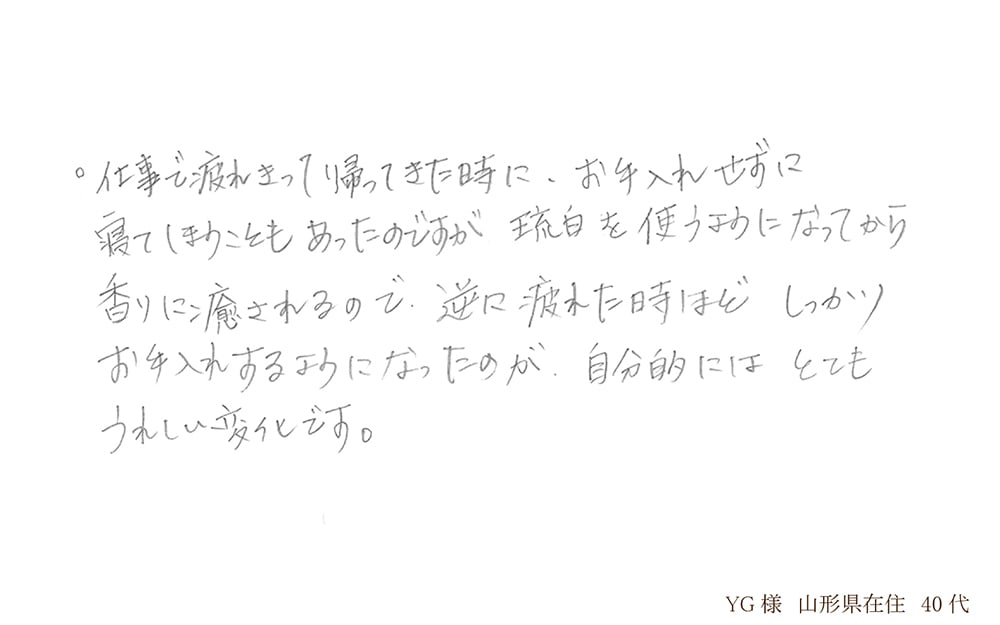 。仕事で疲れきって帰ってきた時に、お手入れせずに
寝てしまうこともあったのですが 琉白を使うようになってから
香りに癒されるので、逆に疲れた時ほど しっかり
お手入れするようになったのが、自分的には とても
うれしい変化です。
YG様 山形県在住 40代